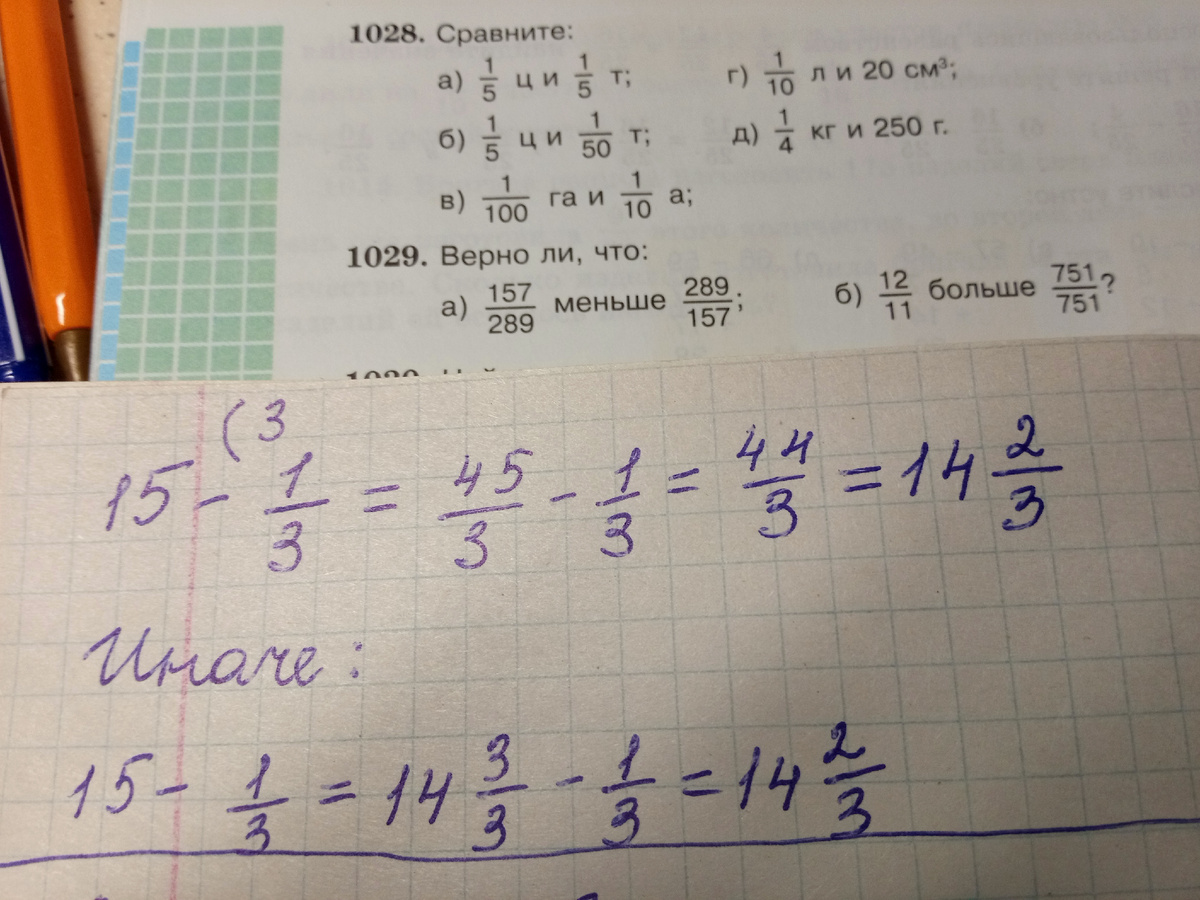 1028. Сравните:
а) 1/5 ц и 1/5 т; г) 1/10 л и 20 см³;
б) 1/5 ц и 1/50 т; д) 1/4 кг и 250 г.
в) 1/100 га и 1/10 а;
1029. Верно ли, что:
а) 157/289 меньше 289/157; б) 12/11 больше 751/751?
(3
15 - 1/3 = 45/3 - 1/3 = 44/3 = 14 2/3
Иначе:
15 - 1/3 = 14 3/3 - 1/3 = 14 2/3